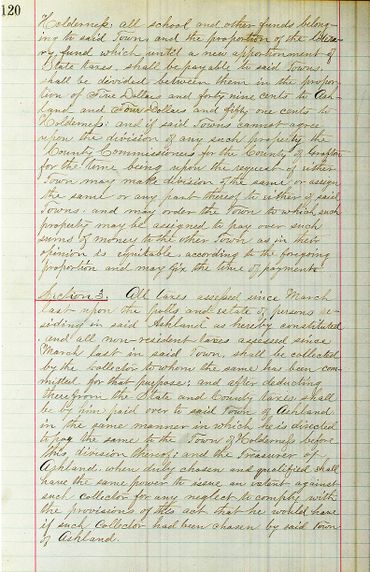 120
Holderness, all school and other funds belong-
ing to said Town, and the proportion of the Litera-
ry fund which until a new apportionment of
State taxes shall be payable to said Towns.
shall be divided between them in the propor-
tion of Five Dollars and forty nine cents to Ash-
land and Four Dollars and fifty one cents to
Holderness: and if said Towns cannot agree
upon the division of any such property the
County Commissioners for the County of Grafton
for the time being upon the request of either
Town may make division of the same or assign
the same or any part thereof to either of said
Towns. and may order the Town to which such
property may be assigned to pay over such
sums of money to the other Town as in their
opinion is equitable according to the foregoing
proportion and may fix the time of payment.
Section 3. All taxes assessed since March
last upon the polls and estate of persons re-
siding in said Ashland as hereby constituted
and all non-resident taxes assessed since
March last in said Town, shall be collected
by the Collector to whom the same has been com-
mitted for that purpose; and after deducting
therefrom the State and County taxes shall
be by him paid over to said Town of Ashland
in the same manner in which he is directed
to pay the same to the Town of Holderness before
this division thereof; and the Treasurer of
Ashland, when duly chosen and qualified, shall
have the same power to issue an extent against
such Collector for any neglect to comply with
the provisions of this act that he would have
if such Collector had been chosen by said Town
of Ashland.